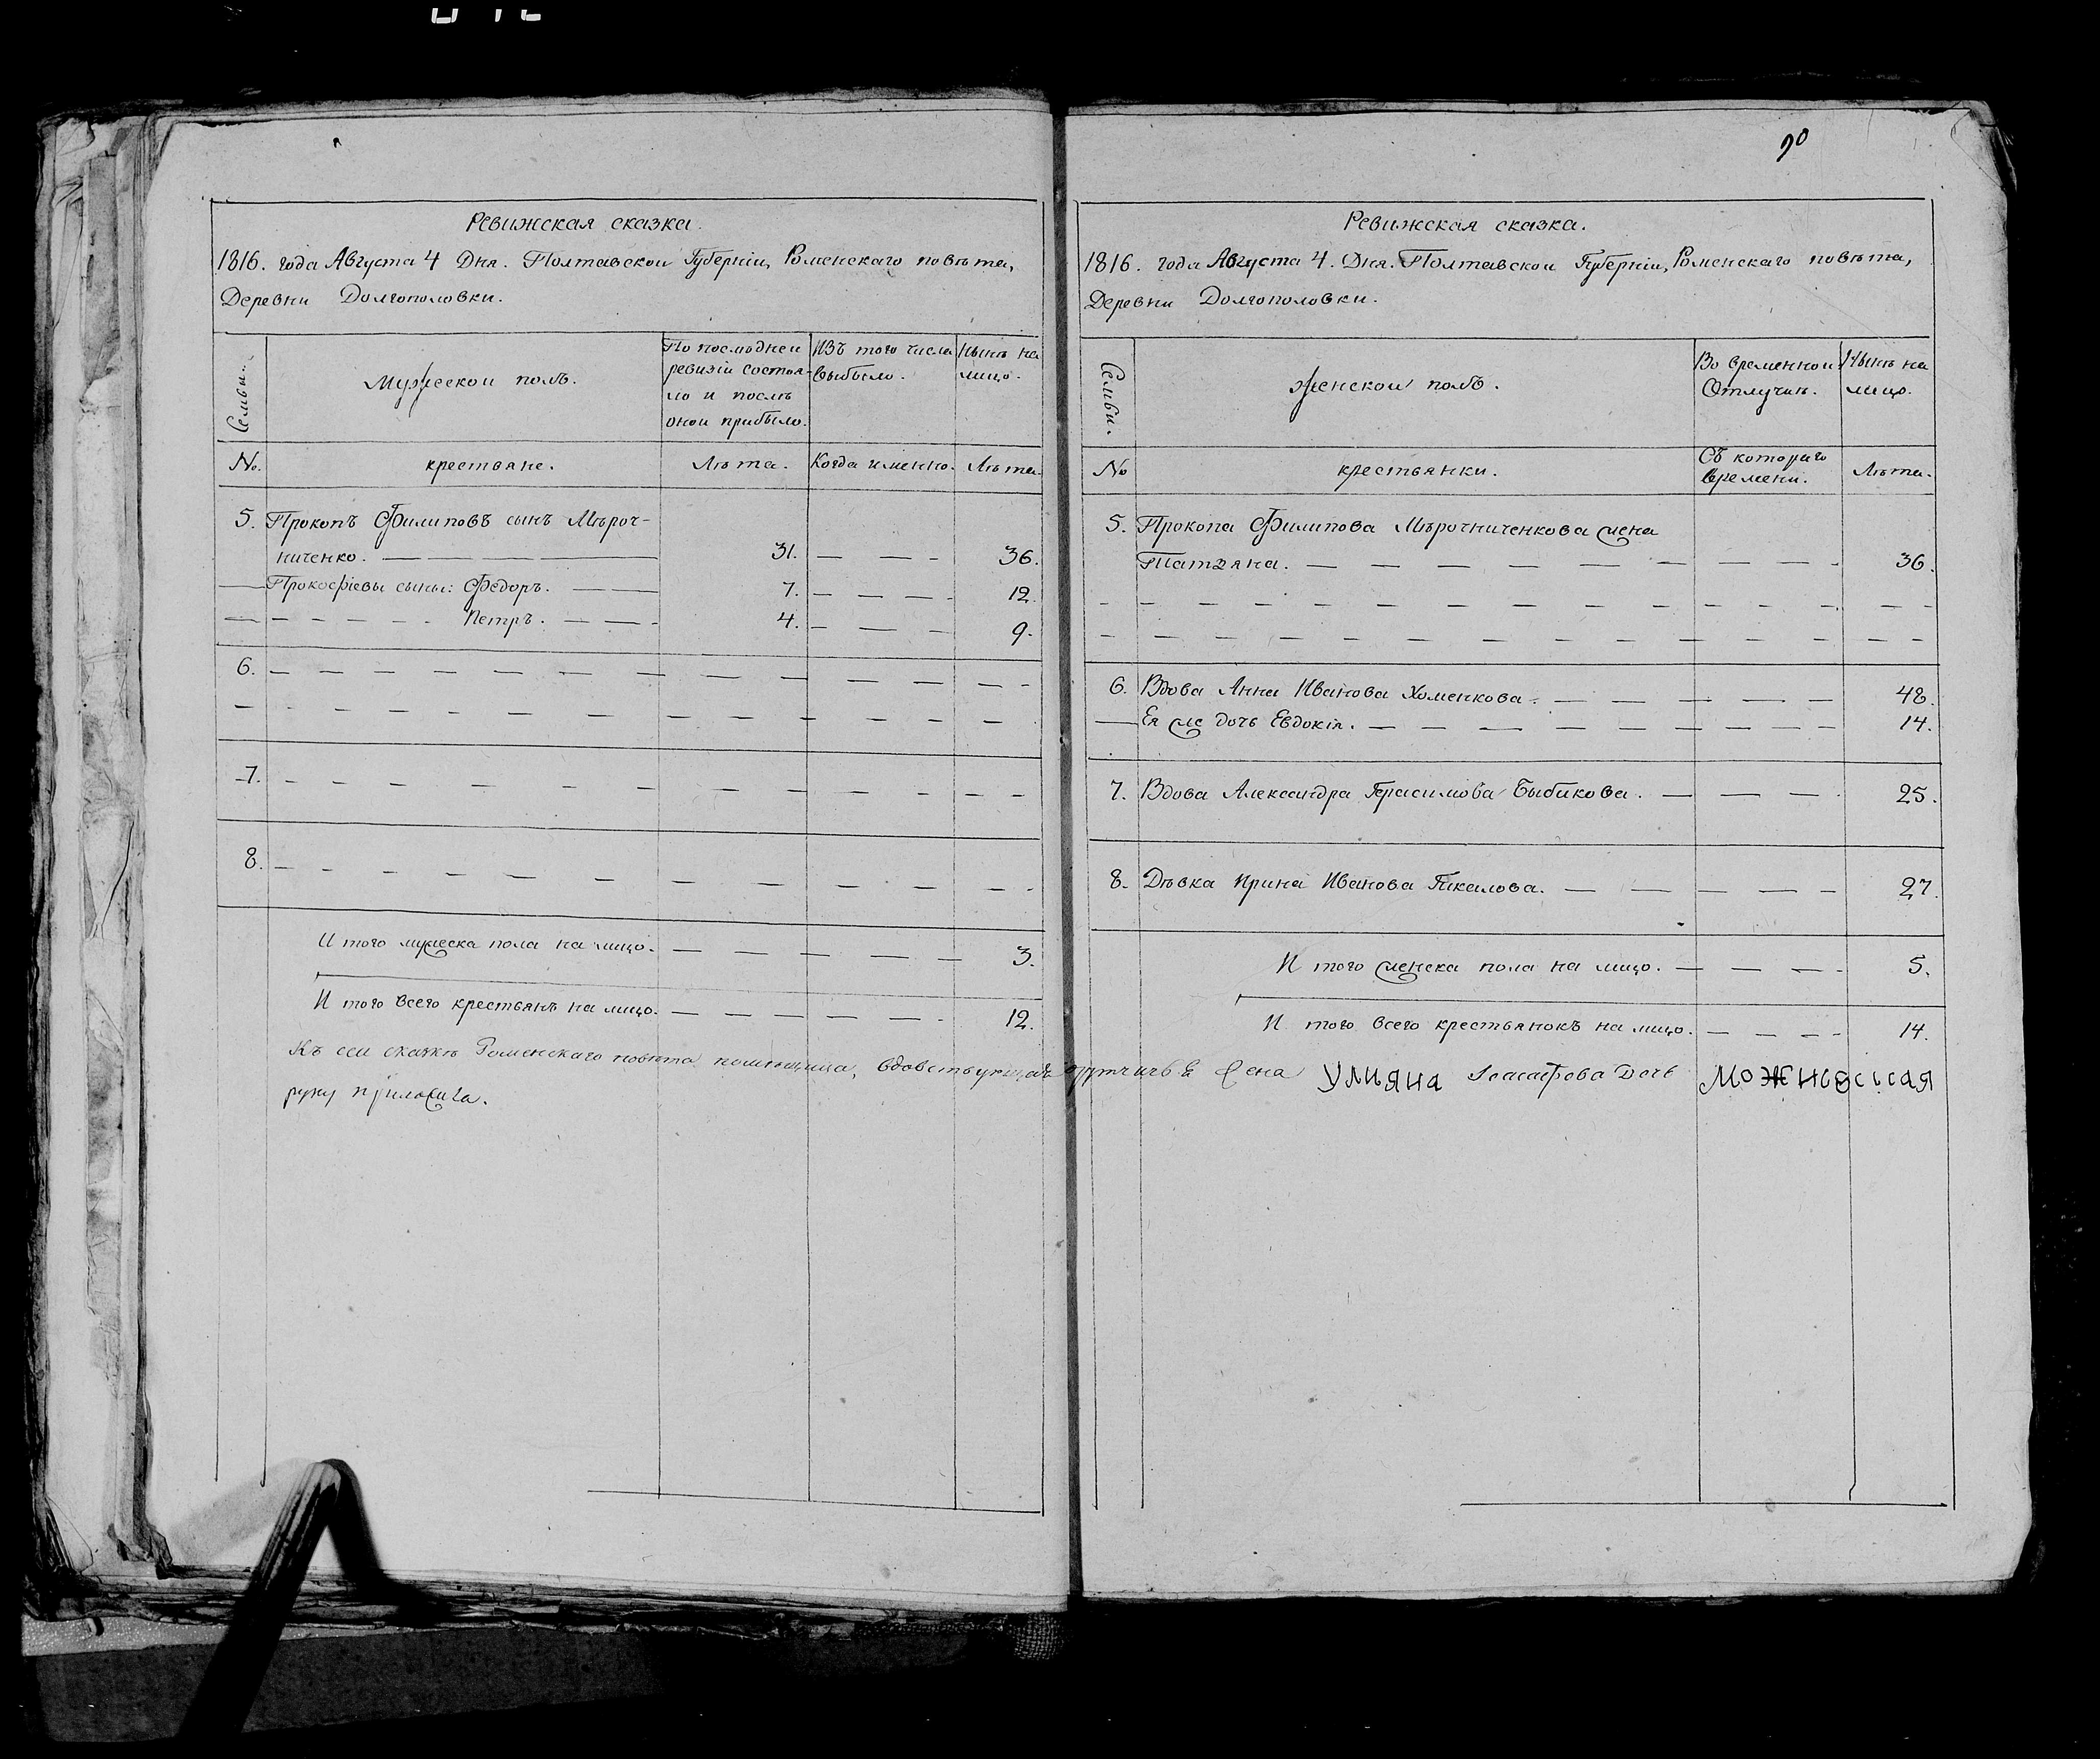 Ревижская сказка.
1816. года Августа 4 Дня. Полтавской Губерніи, Роменскаго повѣта,
Деревни Долгополовки.
Семьи.
Мужеской полъ.
По последней ревизіи состояло и послѣ оной прибыло.
Изъ того числа выбыло.
Нынѣ на лицо.
№.
крестьяне.
Лѣта.
Когда именно.
Лѣта.
5. Прокопъ Филиповъ сынъ Мѣроч-
ниченко. 31. 36.
Прокофіевы сыны: Федоръ. 7. 12.
Петръ. 4. 9.
6.
7.
8.
Итого мужеска пола на лицо. 3.
Итого всего крестьянъ на лицо. 12.
90
Ревижская сказка.
1816. года Августа 4. Дня. Полтавской Губерніи, Роменскаго повѣта,
Деревни Долгополовки.
Семьи.
Женской полъ.
Во временной Отлучкѣ.
Нынѣ на лицо.
№
крестьянки.
Съ котораго времени.
Лѣта.
5. Прокопа Филипова Мѣрочниченкова жена
Татіяна. 36.
6. Вдова Анна Иванова Хоменкова. 48.
Ея же дочь Евдокія. 14.
7. Вдова Александра Герасимова Быбикова. 25.
8. Дѣвка Ирина Иванова 27.
Итого женска пола на лицо. 5.
Итого всего крестьянокъ на лицо. 14.
Къ сей сказкѣ Роменскаго повѣта помѣщица, вдовствующая жена Улияна Іоасафова Дочь
руку приложила.